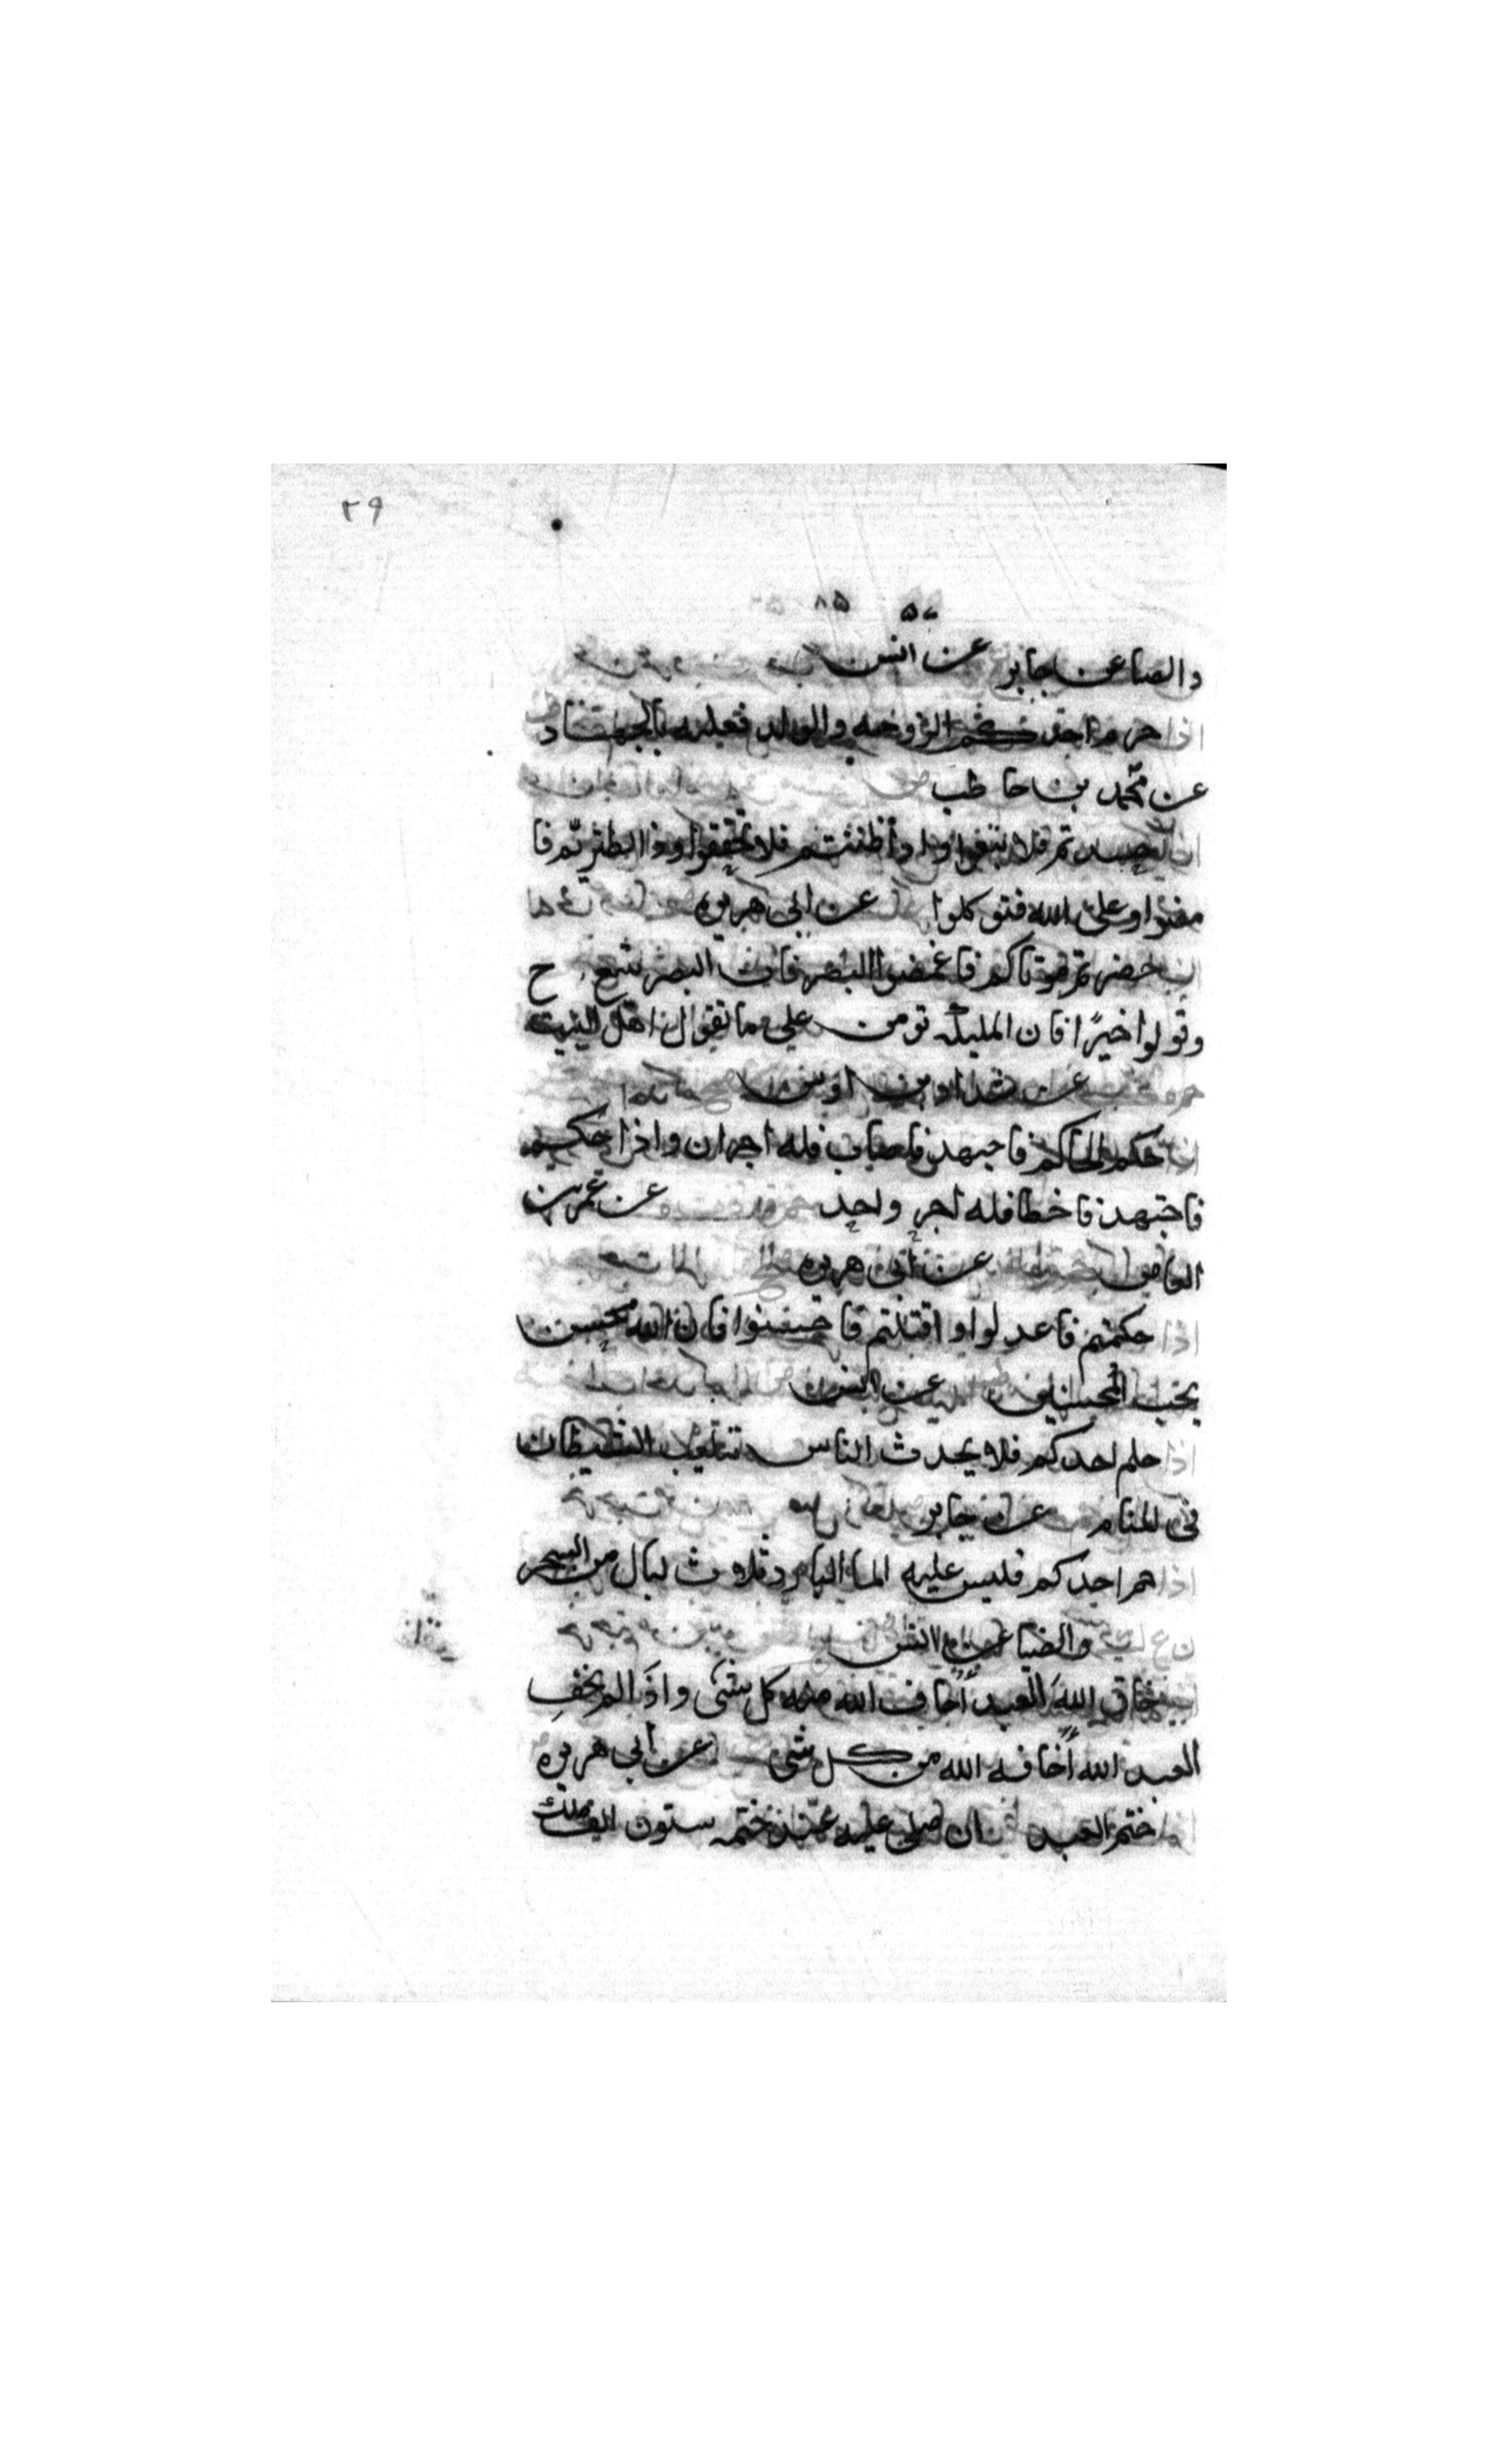 ٢٩
والضيا عن جابر عن انس
اذا حرم احدكم الزوجه والولد فعليه بالجهاد
عن محمد بن حاطب
اذا حسدتم فلا تبغوا واذا ظننتم فلا تحققوا واذا تطيرتم فا
مضوا وعلى الله فتوكلوا عن ابي هريره
اذا حضرتم موتاكم فاغمضوا البصر فان البصر يتبع ح
وقولوا خيرًا فان المليكة تومن على ما تقول اهل البيت
عن شداد بن اوس
اذا حكم الحاكم فاجتهد فاصاب فله اجران واذا حكم
فاجتهد فاخطا فله اجر واحد عن عمر بن
العاص عن ابي هريره
اذا حكمتم فاعدلوا واذا قتلتم فاحسنوا فان الله محسن
يحب المحسنين عن انس
اذا حلم احدكم فلا يحدث الناس بتلعب الشيطان
فى المنام عن جابر
اذا حم احدكم فليس عليه الما البارد ثلاث ليال من السحر
ن ع ك والضيا عن انس
خاف الله العبد أخاف الله منه كل شى واذا لم يخف
العبد الله أخافه الله من كل شى عن ابي هريره
اذا ختم العبد القران صلى عليه عند ختمه ستون الف ملك